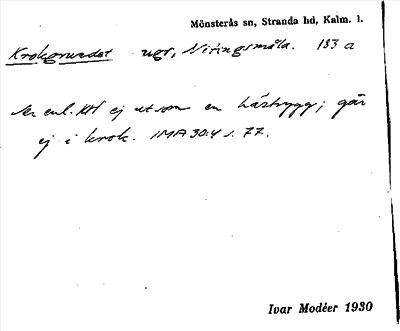 Mönsterås sn, Stranda hd, Kalm. l.
Krokgrundet ugr, Niringsmåla. 183 a
Ser enl. KH ej ut som en hästrygg; går
ej i krok. IMA 30:4 s. 77.
Ivar Modéer 1930